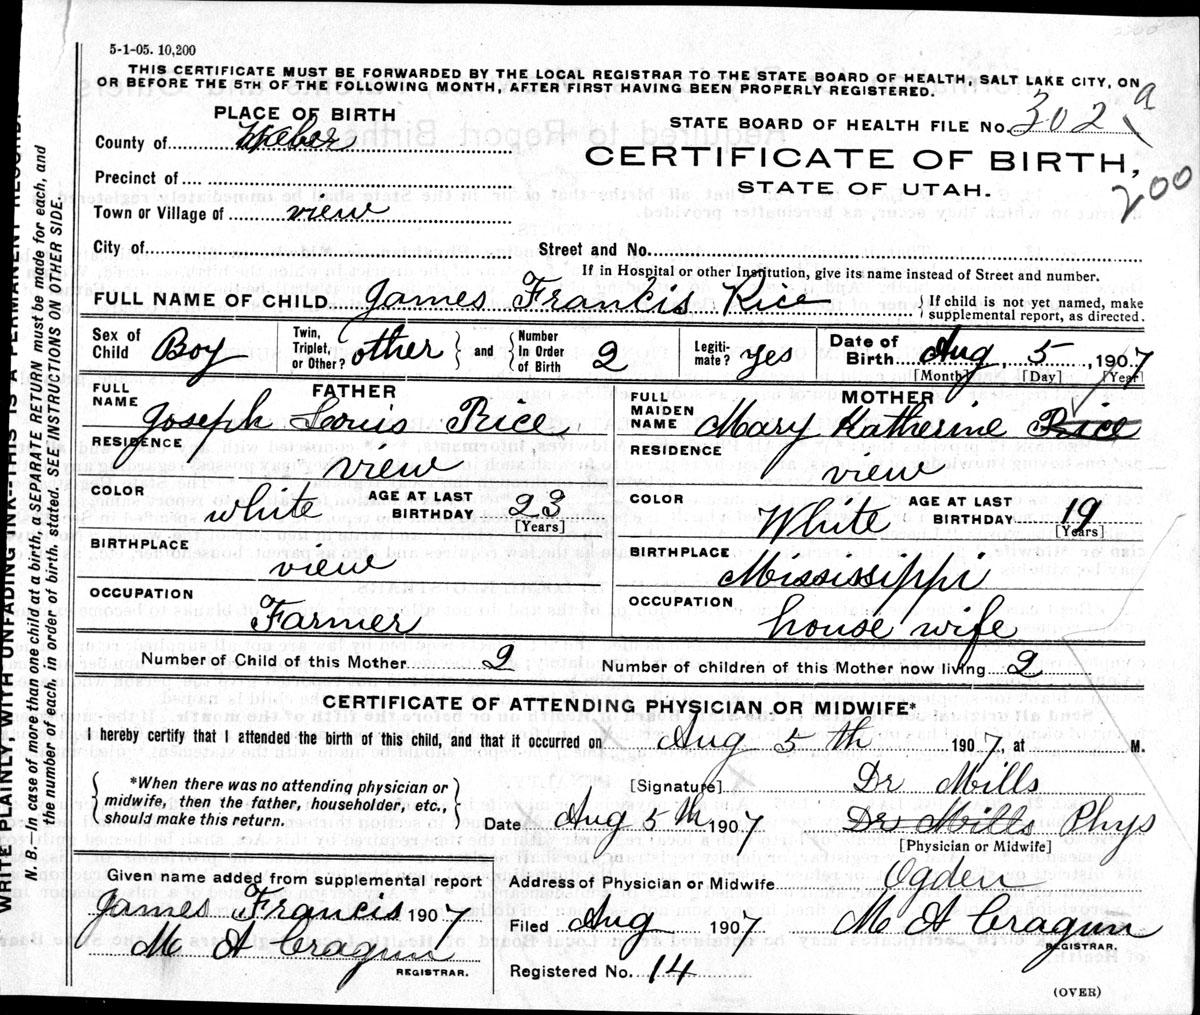 5-1-05. 10,200
THIS CERTIFICATE MUST BE FORWARDED BY THE LOCAL REGISTRAR TO THE STATE BOARD OF HEALTH, SALT LAKE CITY, ON
OR BEFORE THE 5TH OF THE FOLLOWING MONTH, AFTER FIRST HAVING BEEN PROPERLY REGISTERED.
PLACE OF BIRTH
County of Weber
Precinct of
Town or Village of view
City of
STATE BOARD OF HEALTH FILE No. 302 a
CERTIFICATE OF BIRTH,
STATE OF UTAH.
200
Street and No.
If in Hospital or other Institution, give its name instead of Street and number.
FULL NAME OF CHILD James Francis Rice { If child is not yet named, make
supplemental report, as directed.
Sex of Child Boy
Twin, Triplet, or Other? other } and { Number In Order of Birth 2
Legiti- mate? yes
Date of Birth Aug 5 1907
[Month] [Day] [Year]
FATHER
FULL NAME Joseph Louis Rice
RESIDENCE view
COLOR white AGE AT LAST BIRTHDAY 23
[Years]
BIRTHPLACE view
OCCUPATION Farmer
MOTHER
FULL MAIDEN NAME Mary Katherine Rice
RESIDENCE view
COLOR White AGE AT LAST BIRTHDAY 19
[Years]
BIRTHPLACE Mississippi
OCCUPATION house wife
Number of Child of this Mother 2 Number of children of this Mother now living 2
CERTIFICATE OF ATTENDING PHYSICIAN OR MIDWIFE*
I hereby certify that I attended the birth of this child, and that it occurred on Aug 5th 1907, at M.
*When there was no attending physician or
midwife, then the father, householder, etc.,
should make this return.
[Signature] Dr Mills
Date Aug 5th 1907 Dr Mills Phys
[Physician or Midwife]
Given name added from supplemental report
James Francis 1907
M A Cragun
REGISTRAR.
Address of Physician or Midwife Ogden
Filed Aug 1907 M A Cragun
REGISTRAR.
Registered No. 14
(OVER)
WRITE PLAINLY WITH UNFADING INK--THIS IS A PERMANENT RECORD.
N. B.—In case of more than one child at a birth, a SEPARATE RETURN must be made for each, and
the number of each, in order of birth, stated. SEE INSTRUCTIONS ON OTHER SIDE.